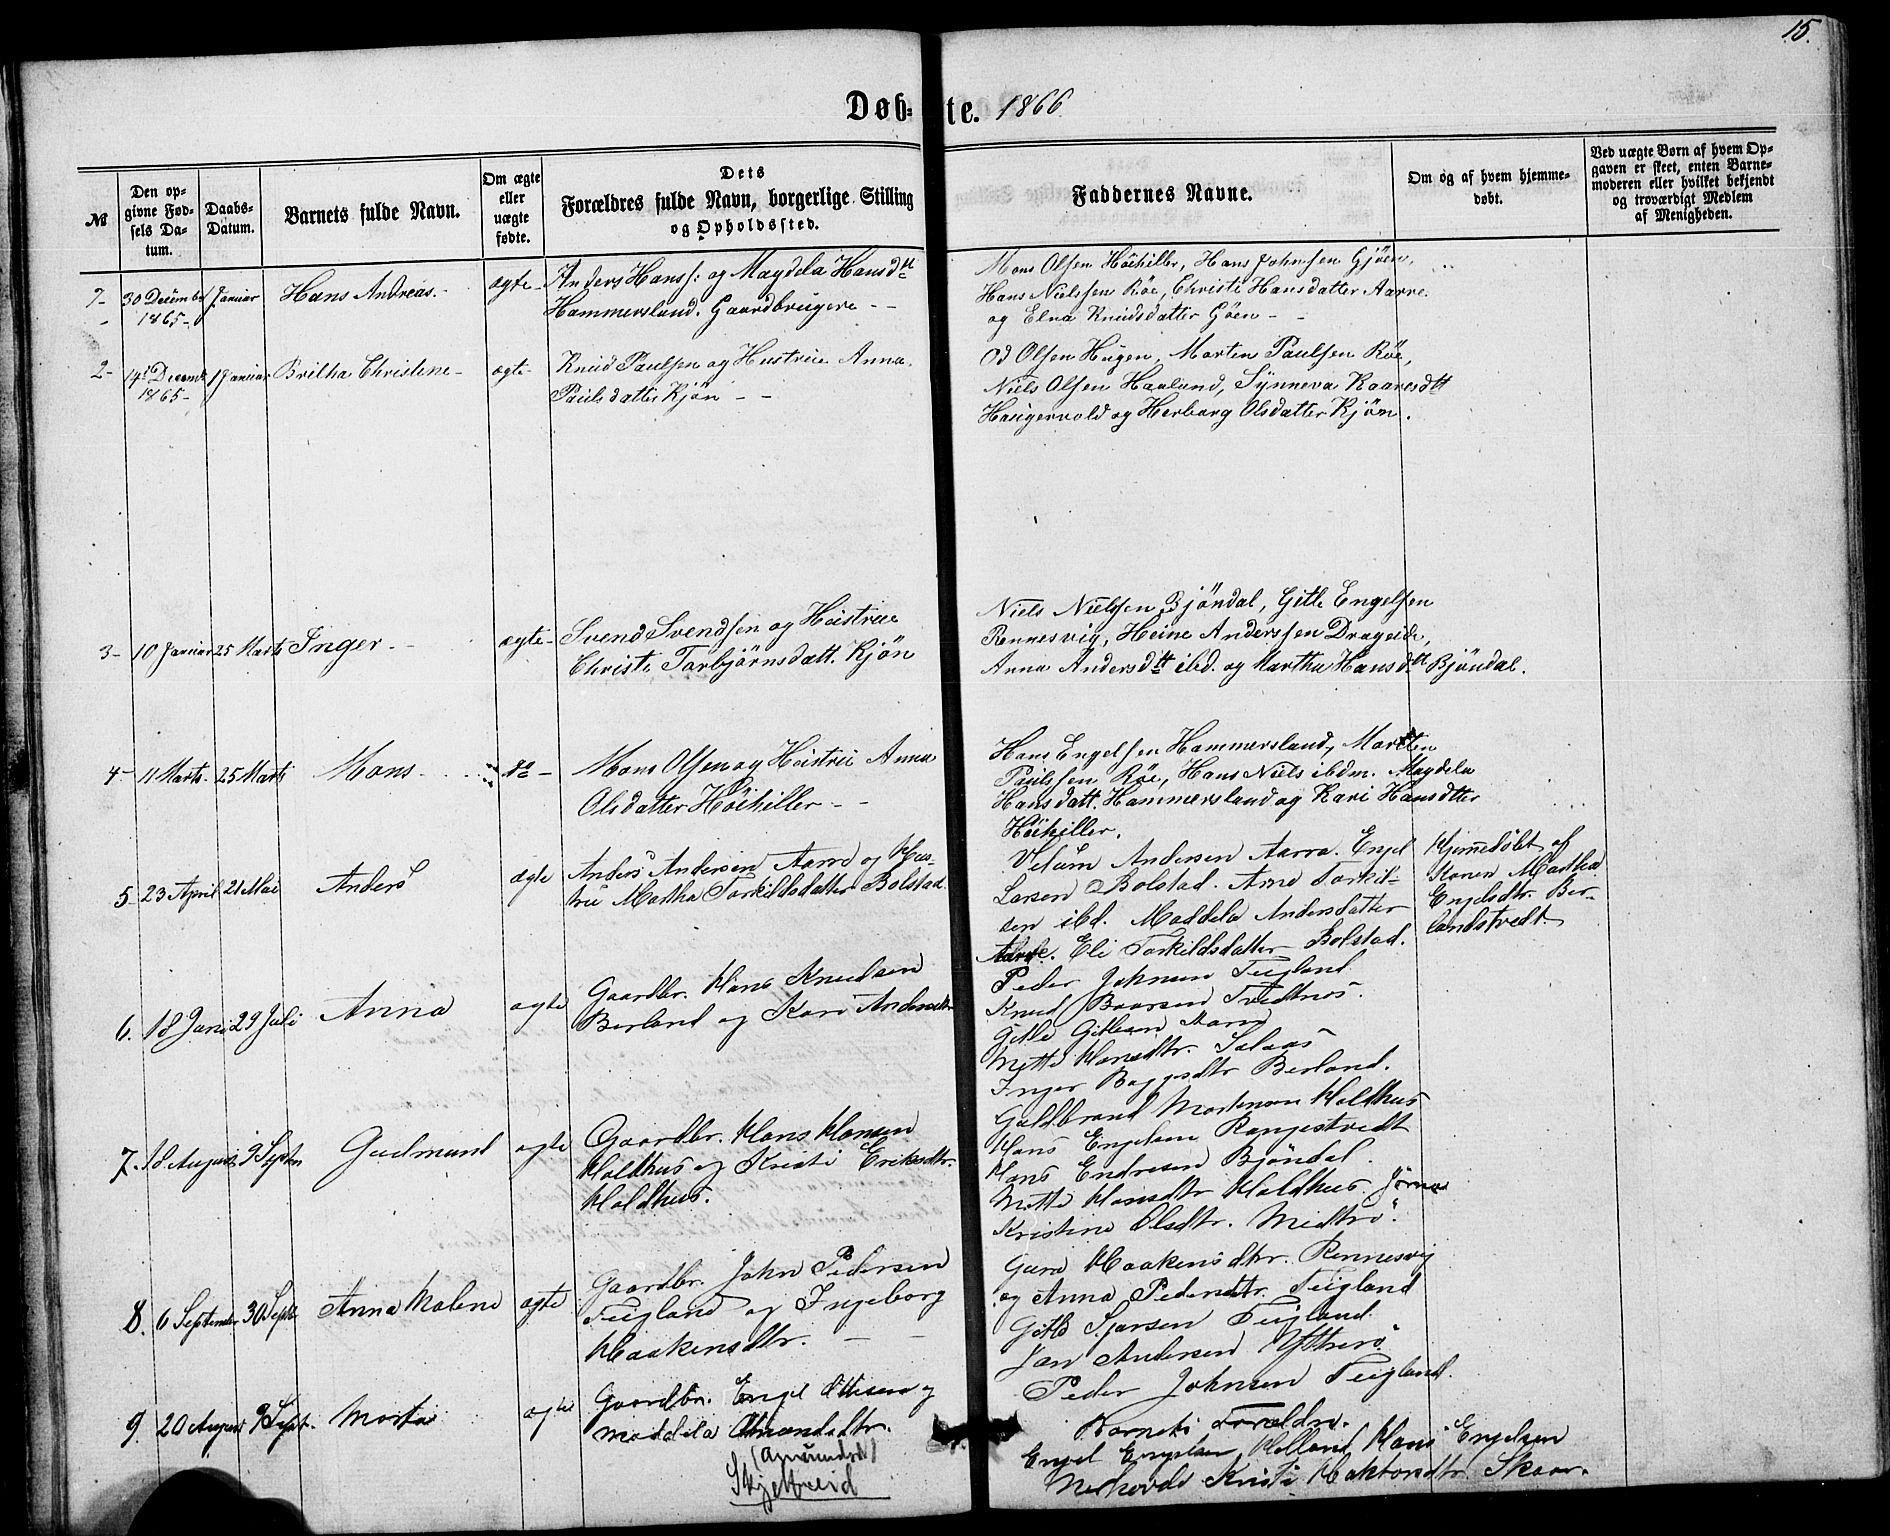 15.
Døb-te. 1866
№
Den op-
givne Fød-
sels Da-
tum.
Daabs-
Datum.
Barnets fulde Navn.
Om ægte
eller
uægte
fødte.
Dets
Forældres fulde Navn, borgerlige Stilling
og Opholdssted.
Faddernes Navne.
Om og af hvem hjemme-
døbt.
Ved uægte Børn af hvem Op-
gaven er skeet, enten Barne-
moderen eller hvilket bekjendt
og troværdigt Medlem
af Menigheden.
30 Decembr 1 Januar Hans Andreas. - ægte - Anders Hanss: og Magdela Hansdtt
1865 -
Hammersland. Gaardbrugere - -
Mons Olsen Höihiller, Hans Johnsen Gjöen,
Hans Nielssen Röe, Christi Hansdatter Aarre
og Elna Knudsdatter Göen - -
2- 14de Decemb 1 Januar Britha Christene - ægte - Knud Paulsen og Hustrue Anna
1865 -
Paulsdatter Kjön - -
Od Olsen Hugen, Morten Paulsen Röe,
Niels Olsen Haaland, Synneva Kaaresdtt
Haugervold og Herborg Olsdatter Kjön.
3- 10 Januar 25 Marts Inger - - ægte - Svend Svendsen og Hustrue
Christi Torbjørnsdatt. Kjön
Niels Nielssen Bjöndal, Gitle Engelsen
Rennesvig, Heine Anderssen Drageide,
Anna Andersdtt ibd. og Martha Hansdtt Bjöndal.
4- 11 Marts - 25 Marts Mons - do - Mons Olsen og Hustrue Anna
Olsdatter Höihiller - -
Hans Engelsen Hammersland, Morten
Paulssen Röe, Hans Niels ibdm. Magdela
Hansdatt. Hammersland og Kari Hansdtter
Höihiller.
5- 23 April 21 Mai Anders ægte Anders Andersen Aarre og Hus-
true Martha Torkildsdatter Bolstad
Andersen Aarra. Engel
Larsen Bolstad. Arne Torkil-
sen ibd. Maddela Andersdatter
Aarre. Eli Torkildsdatter Bolstad.
Hjemedöbt af
Konen Martha
Engelsdtr. Ber-
landstvedt.
6. 18 Juni 29 Juli Anna ægte Gaardbr. Hans Knudsen
Berland og Kari Andersdtr
Peder Johnsen Teigland
Knud Baarsen Tvedtnes.
Gitle Gitlesen
Mette Hansdtr. Solaas
Inger Baggesdtr Berland.
7. 18 August 9 Septm Gudmund ægte Gaardbr. Hans Hansen
Holdhus og Kristi Eriksdtr.
Holdhus.
Guldbrand Mortensen Holdhus
Hans Engelsen Rongestvedt
Hans Endresen Bjöndal.
Mette Hansdtr Holdhus.
Kristine Olsdtr. Midtrö.
8. 6 September 30 Septb Anna Malene ægte Gaardbr. John Pedersen
Teigland og Ingeborg
Haakensdtr. - -
Guro Haakensdtr. Rennesvig
og Anna Pedersdtr. Teigland
Gitle Teigland.
Jan Andersen Yttrerö
Peder Johnsen Teigland.
9. 20 August 9 Sept. Marta ægte Gaardbr. Engel Ottesen og
Maddela Amundsdtr.
(Amundsdt)
Skjelbreid
Barnets Forældre.
Engel Engelsen Helland, Hans Engelsen
Kristi Haktorsdtr. Skaar.